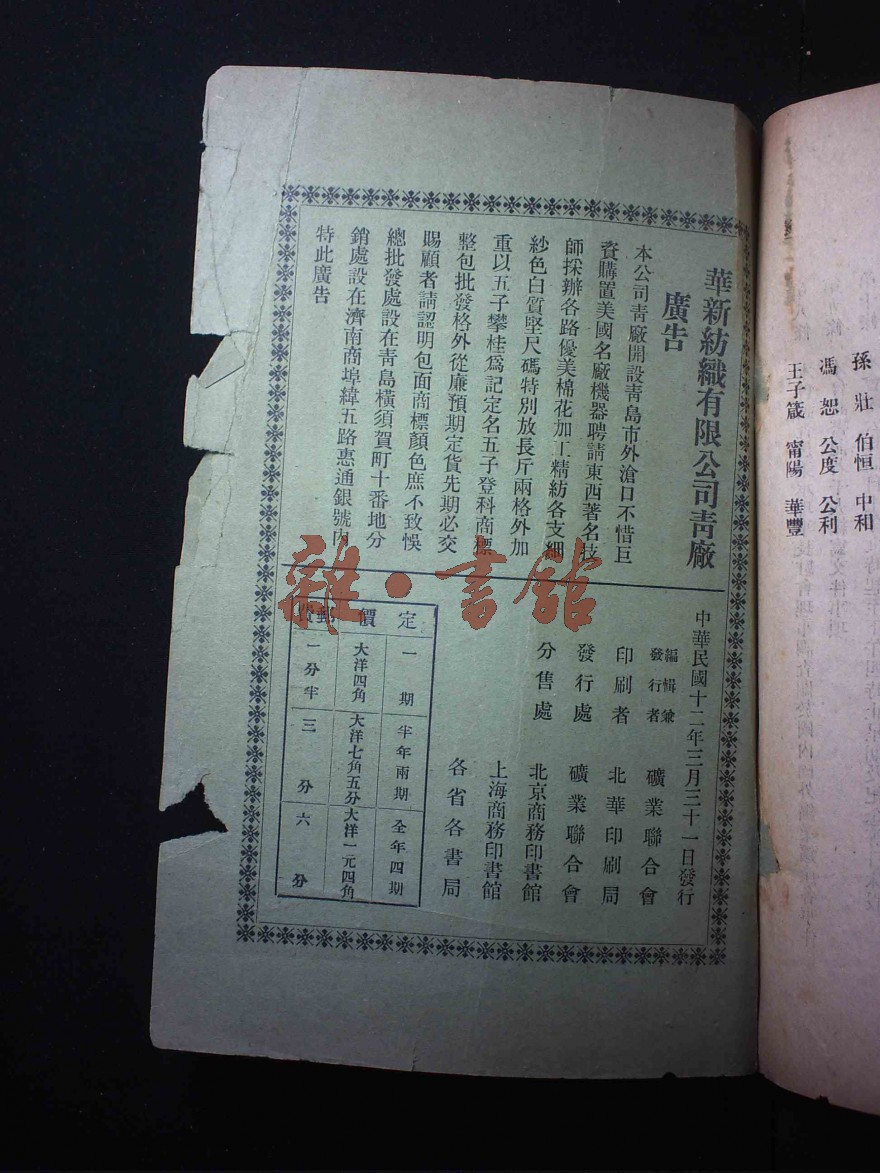 華新紡織有限公司靑廠
廣告
本公司靑廠開設靑島市外滄口不惜巨
資購置美國名廠機器聘請東西著名技
師採辦各路優美棉花加工精紡各支細
紗色白質堅尺碼特別放長斤兩格外加
重以五子攀桂爲記定名五子登科商標
整包批發格外從廉預期定貨先期必交
賜顧者請認明包面商標顏色庶不致悞
總批發處設在靑島橫須賀町十番地分
銷處設在濟南商埠緯五路惠通銀號內
特此廣告
中華民國十二年三月三十一日發行
編輯兼發行者 礦業聯合會
印刷者 北華印刷局
發行處 礦業聯合會
分售處 北京商務印書館
上海商務印書館
各省各書局
定價 郵費
一期 大洋四角 一分半
半年兩期 大洋七角五分 三分
全年四期 大洋一元四角 六分
孫壯 伯恒 中和
馮恕 公度 公利
王子箴 甯陽 華豐
雜·書館